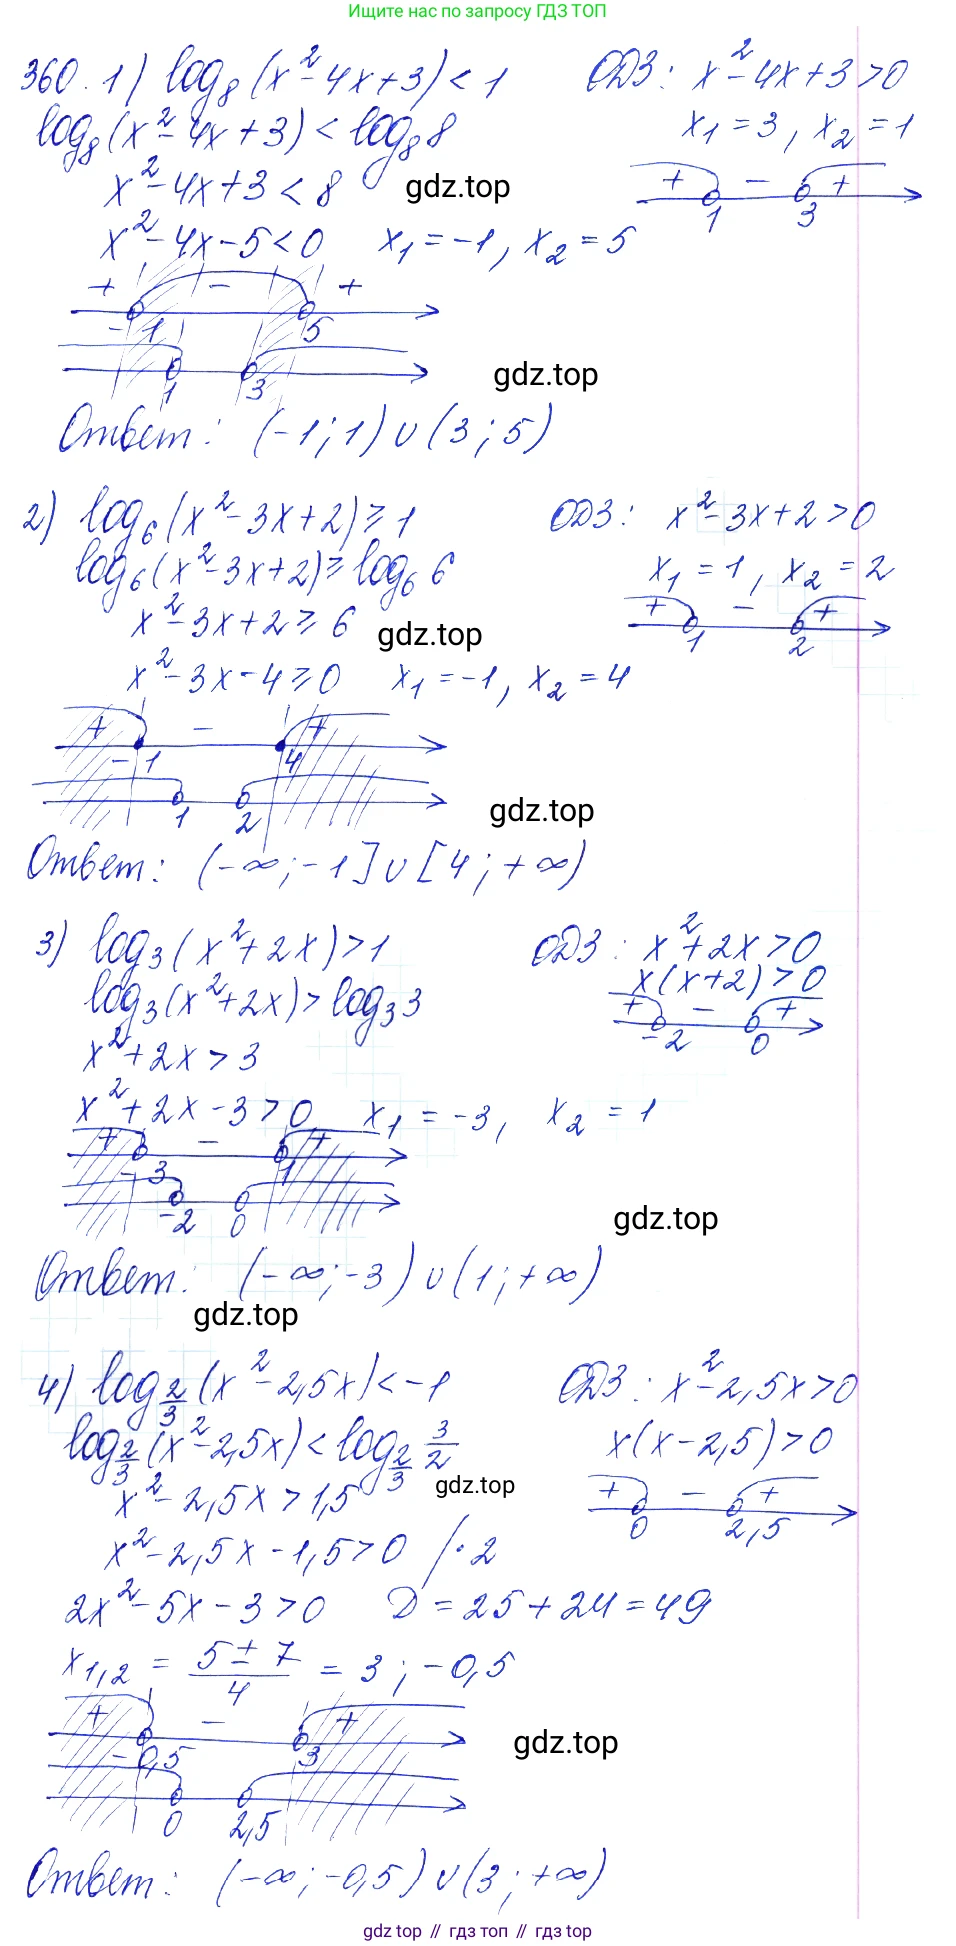 Ищите нас по запросу ГДЗ ТОП
360. 1) log₈(x² - 4x + 3) < 1   ОДЗ: x² - 4x + 3 > 0
log₈(x² - 4x + 3) < log₈8   x₁ = 3, x₂ = 1
x² - 4x + 3 < 8   gdz.top   + - +
1 3
x² - 4x - 5 < 0   x₁ = -1, x₂ = 5
+ - +
-1 5
1 3   gdz.top
Ответ: (-1; 1) ∪ (3; 5)
2) log₆(x² - 3x + 2) ≥ 1   ОДЗ: x² - 3x + 2 > 0
log₆(x² - 3x + 2) ≥ log₆6   x₁ = 1, x₂ = 2
x² - 3x + 2 ≥ 6   gdz.top   + - +
1 2
x² - 3x - 4 ≥ 0   x₁ = -1, x₂ = 4
+ - +
-1 4
1 2   gdz.top
Ответ: (-∞; -1] ∪ [4; +∞)
3) log₃(x² + 2x) > 1   ОДЗ: x² + 2x > 0
log₃(x² + 2x) > log₃3   x(x + 2) > 0
+ - +
x² + 2x > 3   -2 0
x² + 2x - 3 > 0   x₁ = -3, x₂ = 1
+ - +
-3 1
-2 0   gdz.top
Ответ: (-∞; -3) ∪ (1; +∞)
gdz.top
4) log_2/3(x² - 2,5x) < -1   ОДЗ: x² - 2,5x > 0
log_2/3(x² - 2,5x) < log_2/3 3/2   x(x - 2,5) > 0
x² - 2,5x > 1,5   gdz.top   + - +
0 2,5
x² - 2,5x - 1,5 > 0 /· 2
2x² - 5x - 3 > 0   D = 25 + 24 = 49
x₁,₂ = (5 ± 7)/4 = 3; -0,5
+ - +
-0,5 3   gdz.top
0 2,5
Ответ: (-∞; -0,5) ∪ (3; +∞)
gdz top // гдз топ // gdz top